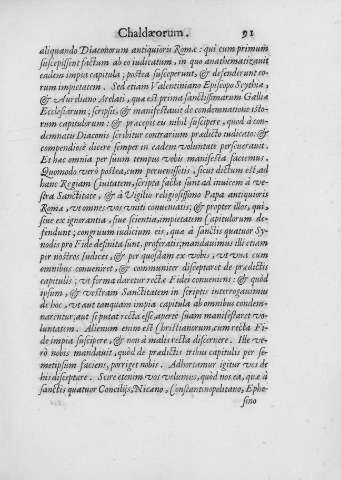 Chaldæorum. 91
aliquando Diaconorum antiquioris Romæ: qui cum primum
suscepissent factum ab eo iudicatum, in quo anathematizauit
eadem impia capitula; postea susceperunt, & defenderunt eo-
rum impietatem. Sed etiam Valentiniano Episcopo Scythiæ,
& Aureliano Arelati, quæ est prima sanctissimarum Galliæ
Ecclesiarum; scripsit, & manifestauit de condemnatione isto-
rum capitulorum: & præcepit eu nihil suscipere, quod à con-
demnatis Diaconis scribitur contrarium prædicto iudicato: &
compendiosè dicere semper in eadem voluntate perseuerauit.
Et hæc omnia per suum tempus vobis manifesta faciemus.
Quomodo verò postea, cum peruenissetis, sicut dictum est, ad
hanc Regiam Ciuitatem, scripta facta sunt ad inuicem à ve-
stra Sanctitate, & à Vigilio religiosissimo Papa antiquioris
Romæ, vt omnes vos vniti conueniatis; & propter illos, qui,
siue ex ignorantia, siue scientia, impietatem Capitulorum de-
fendunt; congruum iudicium eis, quæ à sanctis quatuor Sy-
nodis pro Fide definita sunt, proferatis; mandauimus illi etiam
per nostros Iudices, & per quosdam ex vobis, vt vnà cum
omnibus conueniret, & communiter disceptaret de prædictis
capitulis; vt forma daretur rectæ Fidei conueniens: & quòd
ipsum, & vestram Sanctitatem in scriptis interrogauimus
de hoc, vt aut tanquam impia capitula ab omnibus condem-
narentur; aut si putat recta esse, aperte suam manifestaret vo-
luntatem. Alienum enim est Christianorum, cum recta Fi-
de impia suscipere, & non à malis recta discernere. Ille ve-
rò nobis mandauit, quòd de prædictis tribus capitulis per se-
metipsum faciens, porriget nobis. Adhortamur igitur vos de
his disceptare. Scire etenim vos volumus, quòd nos ea, quæ à
sanctis quatuor Concilijs, Nicæno, Constantinopolitano, Ephe-
sino